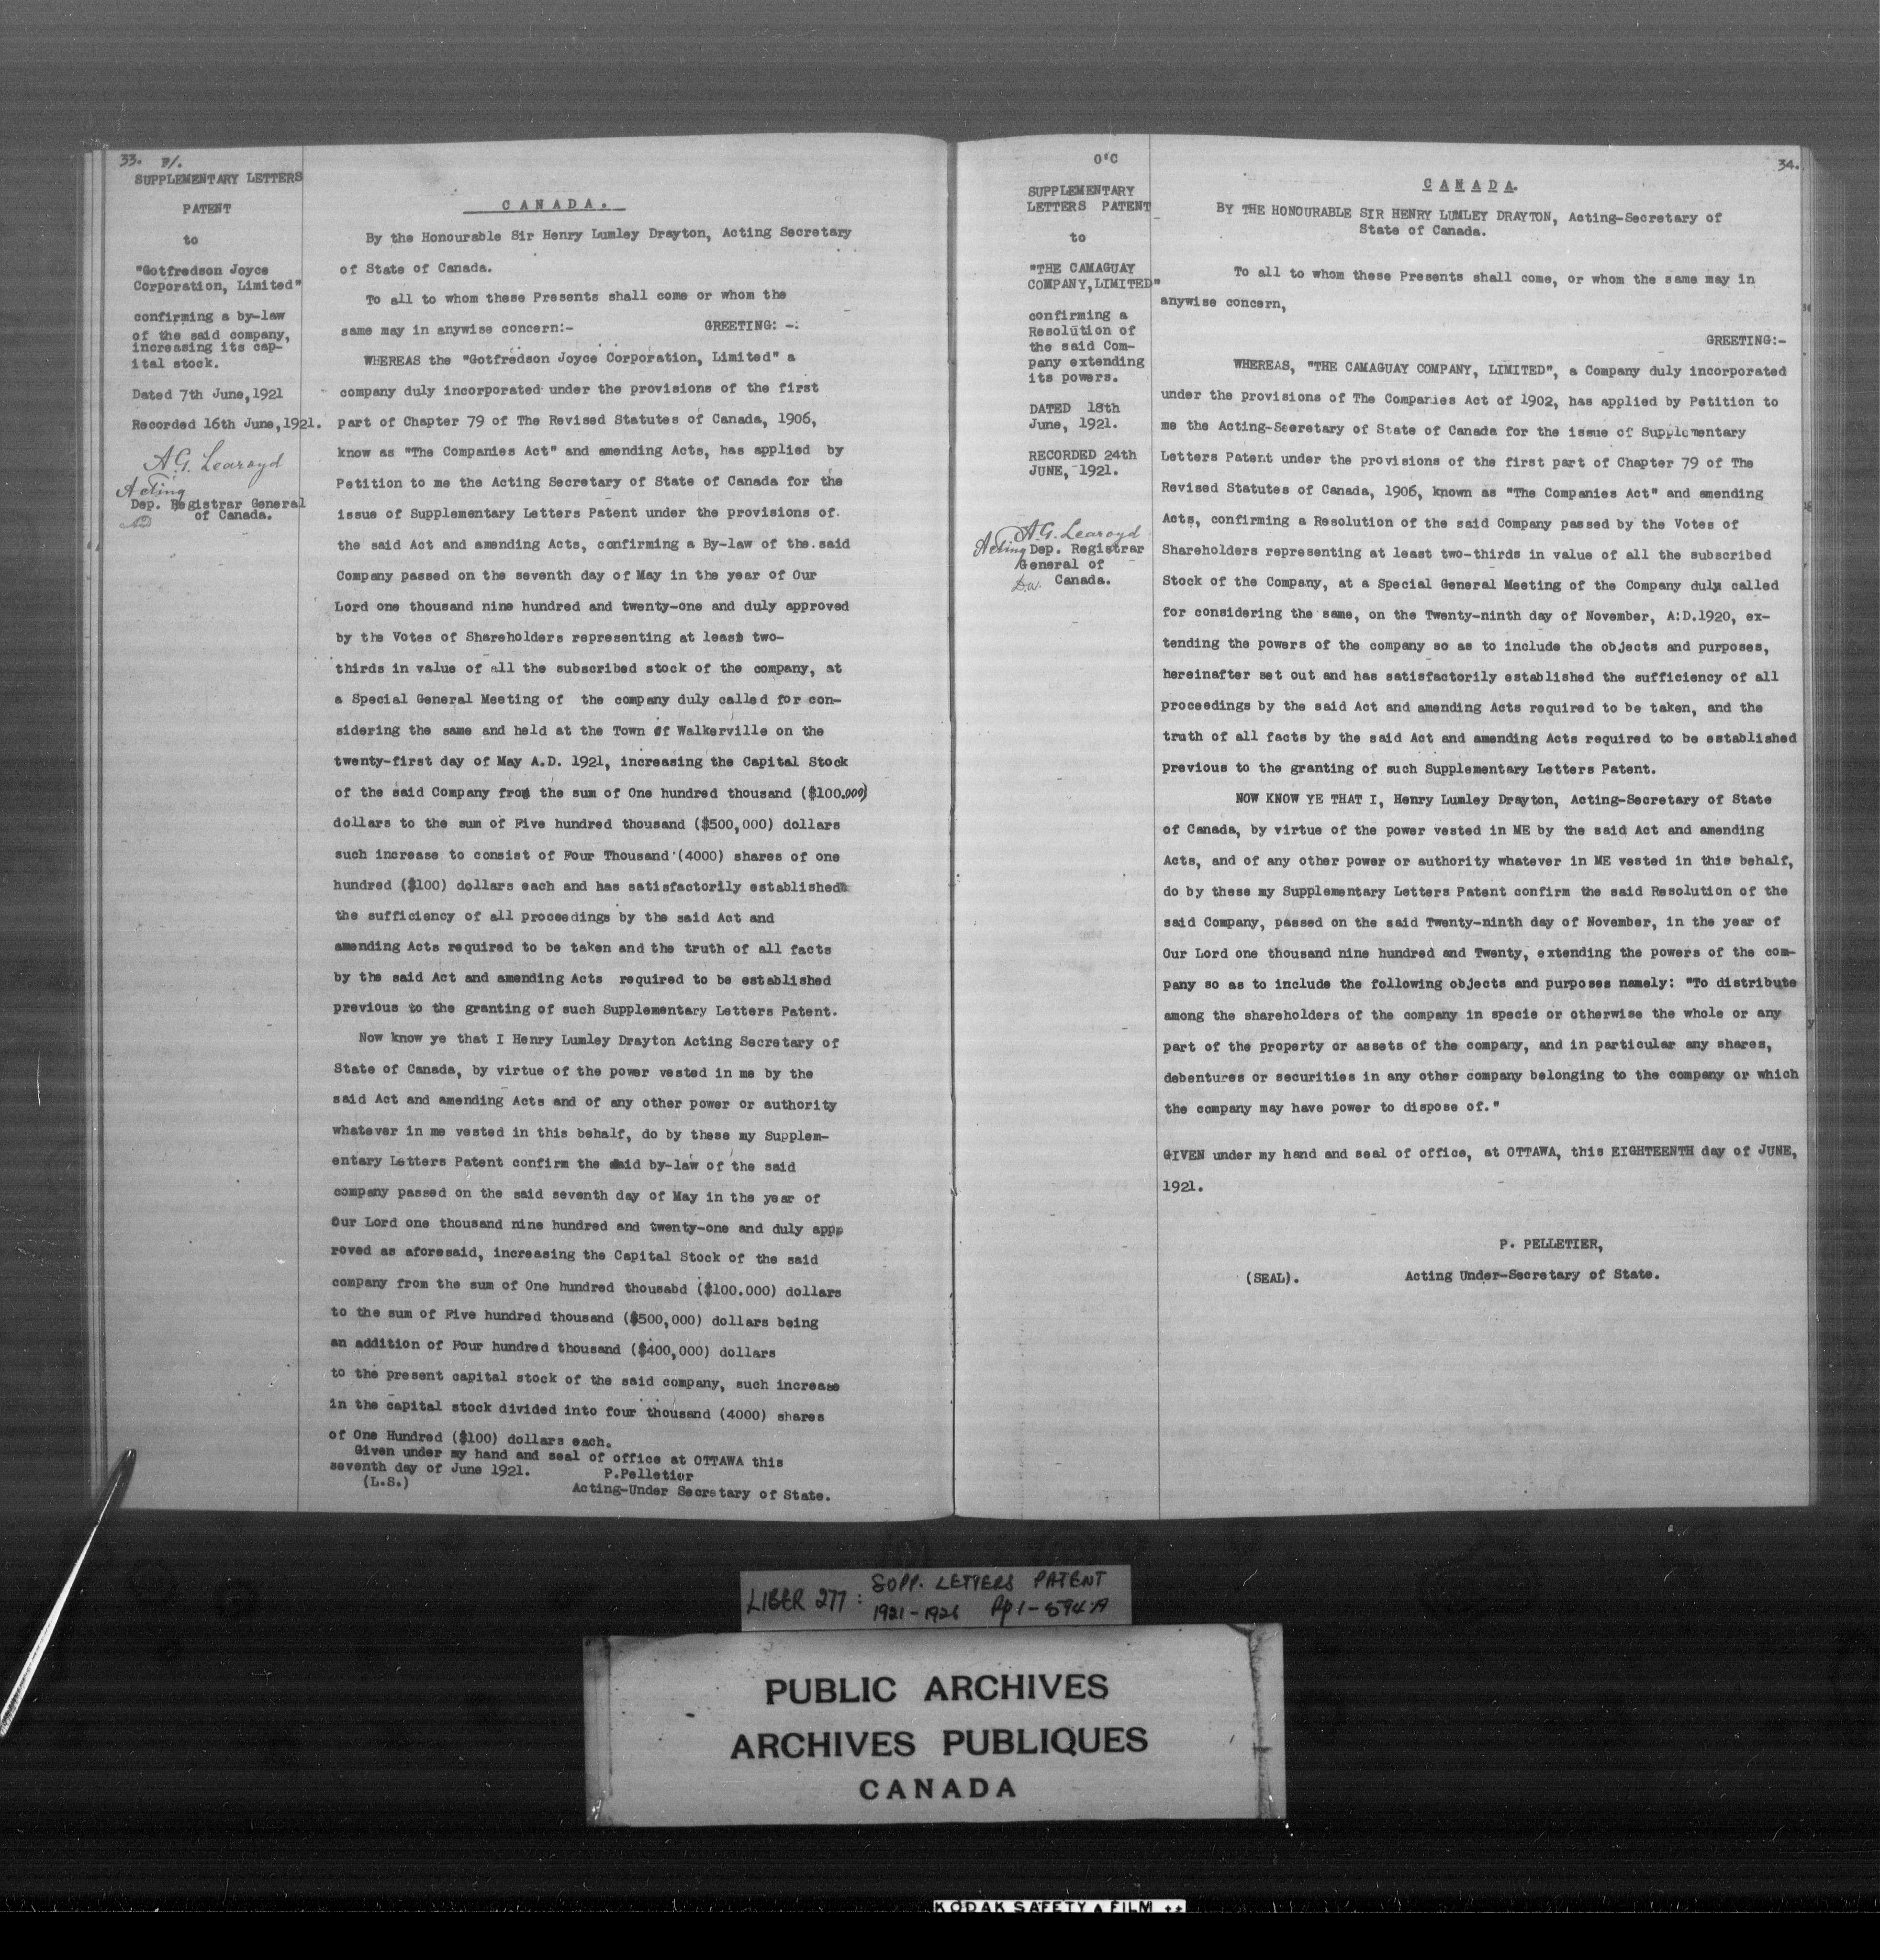 33. F/.
SUPPLEMENTARY LETTERS
PATENT
to
"Gotfredson Joyce
Corporation, Limited"
confirming a by-law
of the said company,
increasing its cap-
ital stock.
Dated 7th June, 1921
Recorded 16th June, 1921.
A.G. Learoyd
Acting
Dep. Registrar General
of Canada.
CANADA.
By the Honourable Sir Henry Lumley Drayton, Acting Secretary
of State of Canada.
To all to whom these Presents shall come or whom the
same may in anywise concern:- GREETING: -:
WHEREAS the "Gotfredson Joyce Corporation, Limited" a
company duly incorporated under the provisions of the first
part of Chapter 79 of The Revised Statutes of Canada, 1906,
know as "The Companies Act" and amending Acts, has applied by
Petition to me the Acting Secretary of State of Canada for the
issue of Supplementary Letters Patent under the provisions of.
the said Act and amending Acts, confirming a By-law of the said
Company passed on the seventh day of May in the year of Our
Lord one thousand nine hundred and twenty-one and duly approved
by the Votes of Shareholders representing at least two-
thirds in value of all the subscribed stock of the company, at
a Special General Meeting of the company duly called for con-
sidering the same and held at the Town of Walkerville on the
twenty-first day of May A.D. 1921, increasing the Capital Stock
of the said Company from the sum of One hundred thousand ($100.000)
dollars to the sum of Five hundred thousand ($500,000) dollars
such increase to consist of Four Thousand (4000) shares of one
hundred ($100) dollars each and has satisfactorily established
the sufficiency of all proceedings by the said Act and
amending Acts required to be taken and the truth of all facts
by the said Act and amending Acts required to be established
previous to the granting of such Supplementary Letters Patent.
Now know ye that I Henry Lumley Drayton Acting Secretary of
State of Canada, by virtue of the power vested in me by the
said Act and amending Acts and of any other power or authority
whatever in me vested in this behalf, do by these my Supplem-
entary Letters Patent confirm the said by-law of the said
company passed on the said seventh day of May in the year of
Our Lord one thousand nine hundred and twenty-one and duly app
roved as aforesaid, increasing the Capital Stock of the said
company from the sum of One hundred thousabd ($100.000) dollars
to the sum of Five hundred thousand ($500,000) dollars being
an addition of Four hundred thousand ($400,000) dollars
to the present capital stock of the said company, such increase
in the capital stock divided into four thousand (4000) shares
of One Hundred ($100) dollars each.
Given under my hand and seal of office at OTTAWA this
seventh day of June 1921. P.Pelletier
(L.S.) Acting-Under Secretary of State.
O'C
34.
SUPPLEMENTARY
LETTERS PATENT
to
"THE CAMAGUAY
COMPANY, LIMITED"
confirming a
Resolution of
the said Com-
pany extending
its powers.
DATED 18th
June, 1921.
RECORDED 24th
JUNE, 1921.
A.G. Learoyd
Acting Dep. Registrar
General of
Canada.
CANADA.
BY THE HONOURABLE SIR HENRY LUMLEY DRAYTON, Acting-Secretary of
State of Canada.
To all to whom these Presents shall come, or whom the same may in
anywise concern,
GREETING:-
WHEREAS, "THE CAMAGUAY COMPANY, LIMITED", a Company duly incorporated
under the provisions of The Companies Act of 1902, has applied by Petition to
me the Acting-Secretary of State of Canada for the issue of Supplementary
Letters Patent under the provisions of the first part of Chapter 79 of The
Revised Statutes of Canada, 1906, known as "The Companies Act" and amending
Acts, confirming a Resolution of the said Company passed by the Votes of
Shareholders representing at least two-thirds in value of all the subscribed
Stock of the Company, at a Special General Meeting of the Company duly called
for considering the same, on the Twenty-ninth day of November, A:D.1920, ex-
tending the powers of the company so as to include the objects and purposes,
hereinafter set out and has satisfactorily established the sufficiency of all
proceedings by the said Act and amending Acts required to be taken, and the
truth of all facts by the said Act and amending Acts required to be established
previous to the granting of such Supplementary Letters Patent.
NOW KNOW YE THAT I, Henry Lumley Drayton, Acting-Secretary of State
of Canada, by virtue of the power vested in ME by the said Act and amending
Acts, and of any other power or authority whatever in ME vested in this behalf,
do by these my Supplementary Letters Patent confirm the said Resolution of the
said Company, passed on the said Twenty-ninth day of November, in the year of
Our Lord one thousand nine hundred and Twenty, extending the powers of the com-
pany so as to include the following objects and purposes namely: "To distribute
among the shareholders of the company in specie or otherwise the whole or any
part of the property or assets of the company, and in particular any shares,
debentures or securities in any other company belonging to the company or which
the company may have power to dispose of."
GIVEN under my hand and seal of office, at OTTAWA, this EIGHTEENTH day of JUNE,
1921.
P. PELLETIER,
(SEAL). Acting Under-Secretary of State.
LIBER 277: SUPP. LETTERS PATENT
1921-1926 Pp 1-594A
PUBLIC ARCHIVES
ARCHIVES PUBLIQUES
CANADA
KODAK SAFETY FILM